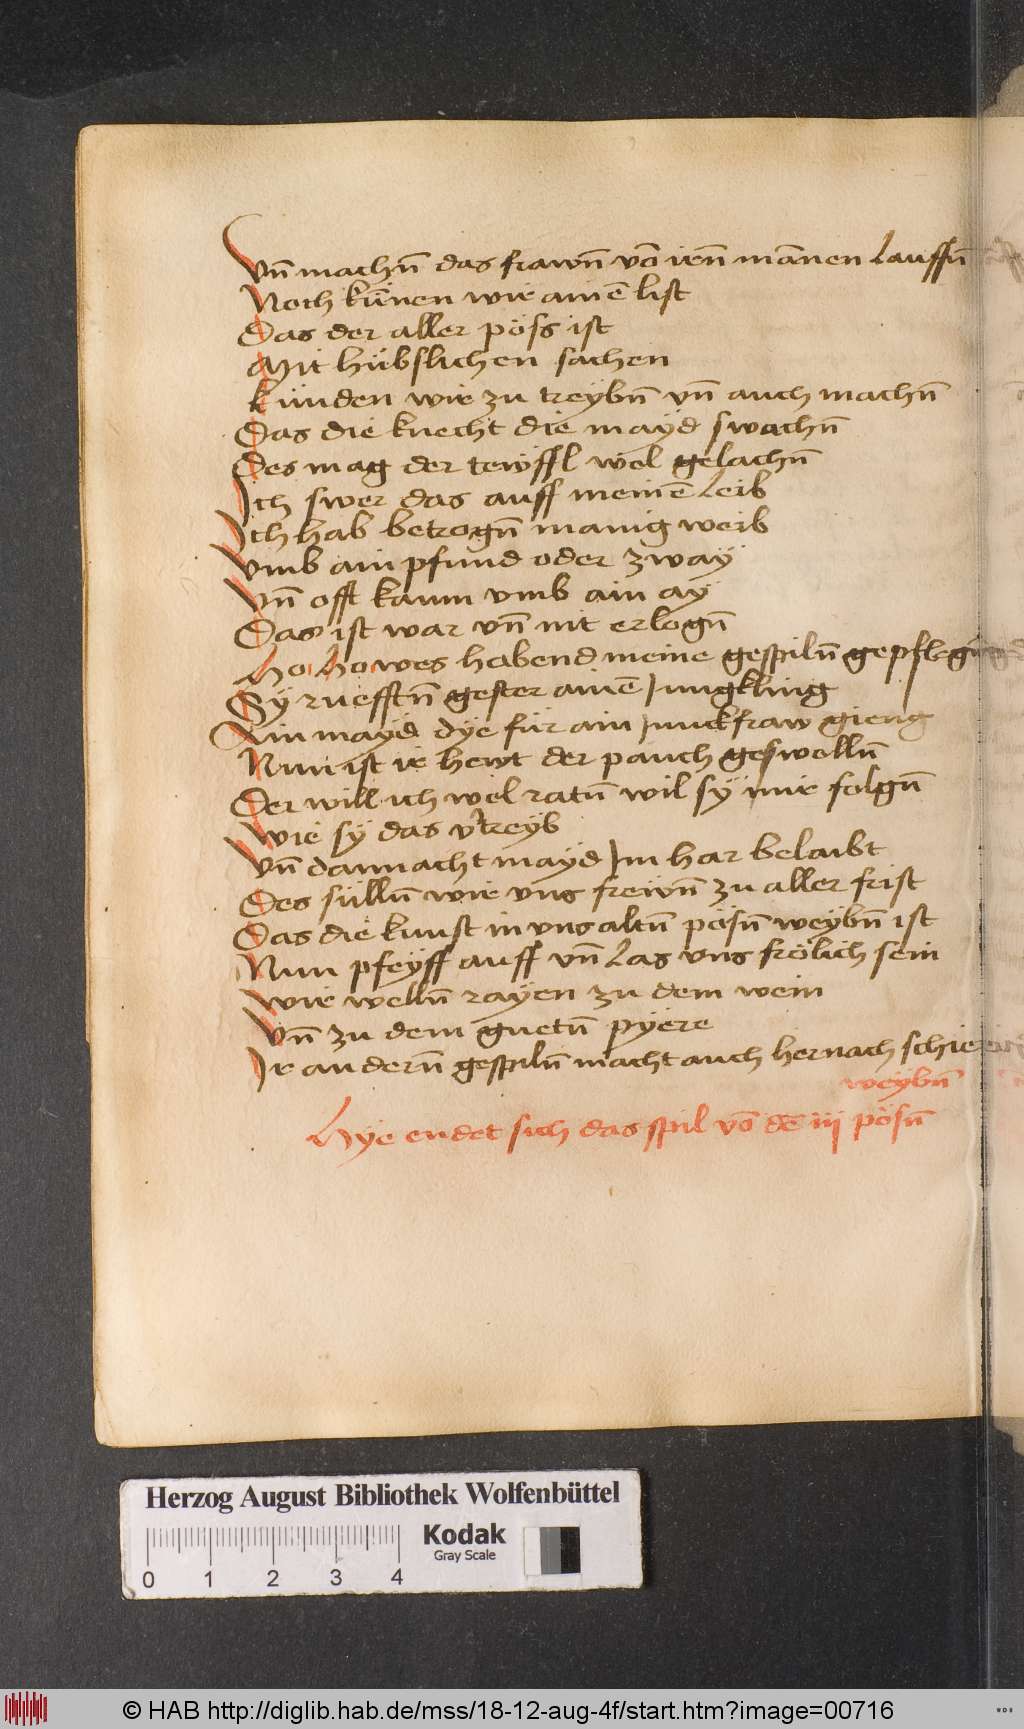 Vn̄ machn̄ das frawn̄ vō iren̄ mānen lauffn̄
Noch kūnen wir ainē list
Das der aller pöss ist
Mit hübslichen sachen
künden wir zu treybn̄ vn̄ auch machn̄
Das die knecht die mayd swachn̄
Des mag der tewffl wol gelachn̄
Ich swer das auff meinē leib
Ich hab betrogn̄ manig weib
Vmb ain pfund oder zway
Vn̄ offt kaum vmb ain ay
Das ist war vn̄ nit erlogn̄
Ho ho wes habend meine gespiln̄ gepflegn̄
Sy rüefftn̄ gester ainē Jungkling
Ain mayd dye für ain Junckfraw gieng
Nun ist ir hewt der pauch geswelln̄
Der will ich wol ratn̄ wil sy mir folgn̄
Wie sy das v̓treyb
Vn̄ dannacht mayd Im har belaibt
Des sülln̄ wir vns frewn̄ zu aller frist
Das die kunst in vns altn̄ pösn̄ weybn̄ ist
Nun pfeyff auff vn̄ las vns frölich sein
Wir welln̄ rayen zu dem wein
Vn̄ zu dem guetn̄ pyere
Ir andern̄ gespiln̄ macht auch hernach schie
weybn̄
Hye endet sich das spil vō dē iij pösn̄
Herzog August Bibliothek Wolfenbüttel
Kodak
Gray Scale
0 1 2 3 4
© HAB http://diglib.hab.de/mss/18-12-aug-4f/start.htm?image=00716